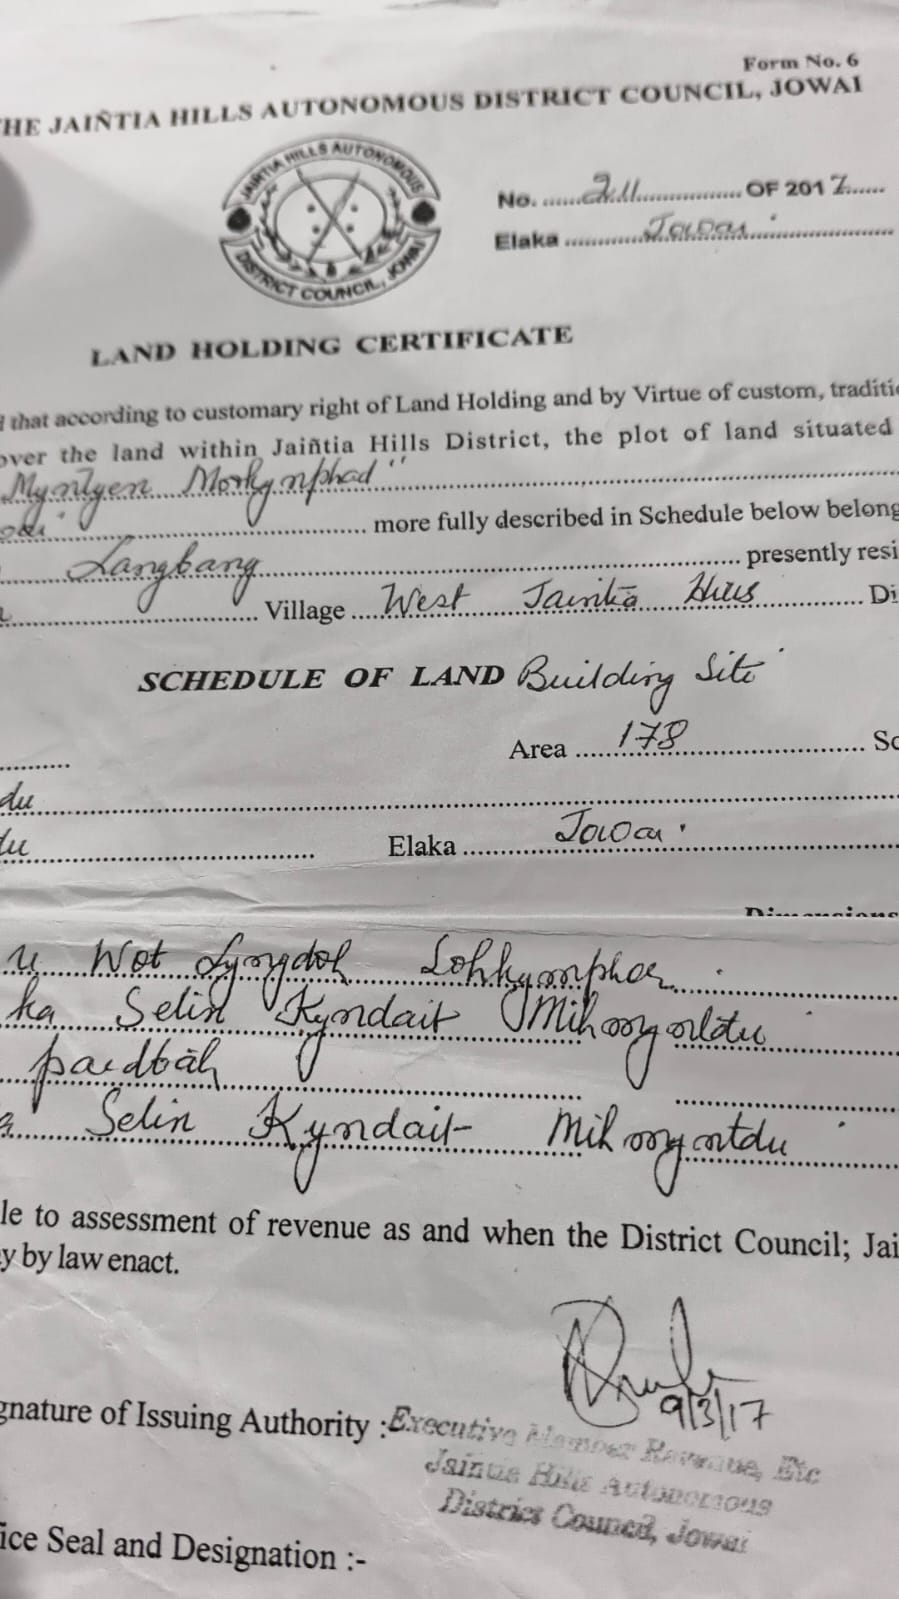 Form No. 6
THE JAIÑTIA HILLS AUTONOMOUS DISTRICT COUNCIL, JOWAI
JAIÑTIA HILLS AUTONOMOUS
DISTRICT COUNCIL, JOWAI
No. ...... 211 ................ OF 2017......
Elaka ............ Jowai ................
LAND HOLDING CERTIFICATE
that according to customary right of Land Holding and by Virtue of custom, traditi
over the land within Jaiñtia Hills District, the plot of land situated
Myntyen Morkynphad"
................ more fully described in Schedule below belong
Langbang ................ presently resi
................ Village .... West Jaintia Hills ............ Di
SCHEDULE OF LAND Building Site
Area ...... 178 ................ Sc
du
du ................ Elaka ............ Jowai
Dimensions
u Wot Lyngdoh
ka Selin Kyndait
paidbah
Selin Kyndait
le to assessment of revenue as and when the District Council; Jai
y by law enact.
9/3/17
gnature of Issuing Authority :
Executive Member Revenue, Etc
Jaintia Hills Autonomous
District Council, Jowai
ice Seal and Designation :-